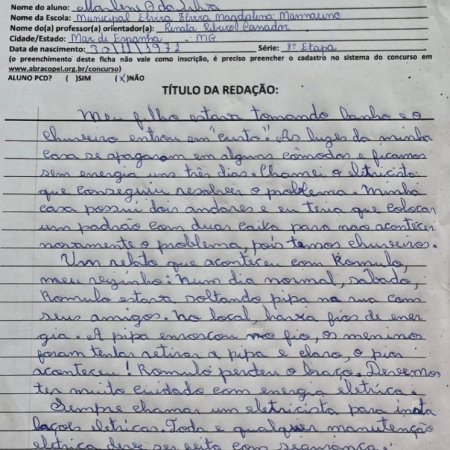 Nome do aluno: Marlene O da Silva
Nome da Escola: Municipal Elvira Maria Magdalena Mannarino
Nome do(a) professor(a) orientador(a): Renata Ribeiro Canador
Cidade/Estado: Mar de Espanha - MG
Data de nascimento: 30/11/1971 Série: 8ª Etapa
(o preenchimento deste ficha não vale como inscrição, é preciso preencher o cadastro no sistema do concurso em
www.abracopel.org.br/concurso)
ALUNO PCD? ( )SIM (X)NÃO
TÍTULO DA REDAÇÃO:
Meu filho estava tomando banho e o
chuveiro entrou em "curto". As luzes da minha
casa se apagaram em alguns cômodos e ficamos
sem energia uns três dias. Chamei o eletricista
que conseguiu resolver o problema. Minha
casa possui dois andares e eu teria que colocar
um padrão com duas caixa para não acontecer
novamente o problema, pois temos chuveiros.
Um relato que aconteceu com Romulo,
meu vizinho: Num dia normal, sábado,
Romulo estava soltando pipa na rua com
seus amigos. No local, havia fios de ener
gia. A pipa enroscou no fio, os meninos
foram tentar retirar a pipa e claro, o pior
aconteceu! Romulo perdeu o braço. Devemos
ter muito cuidado com energia elétrica.
Sempre chamar um eletricista para insta
lações elétricas. Toda e qualquer manutenção
elétrica deve ser feita com segurança.